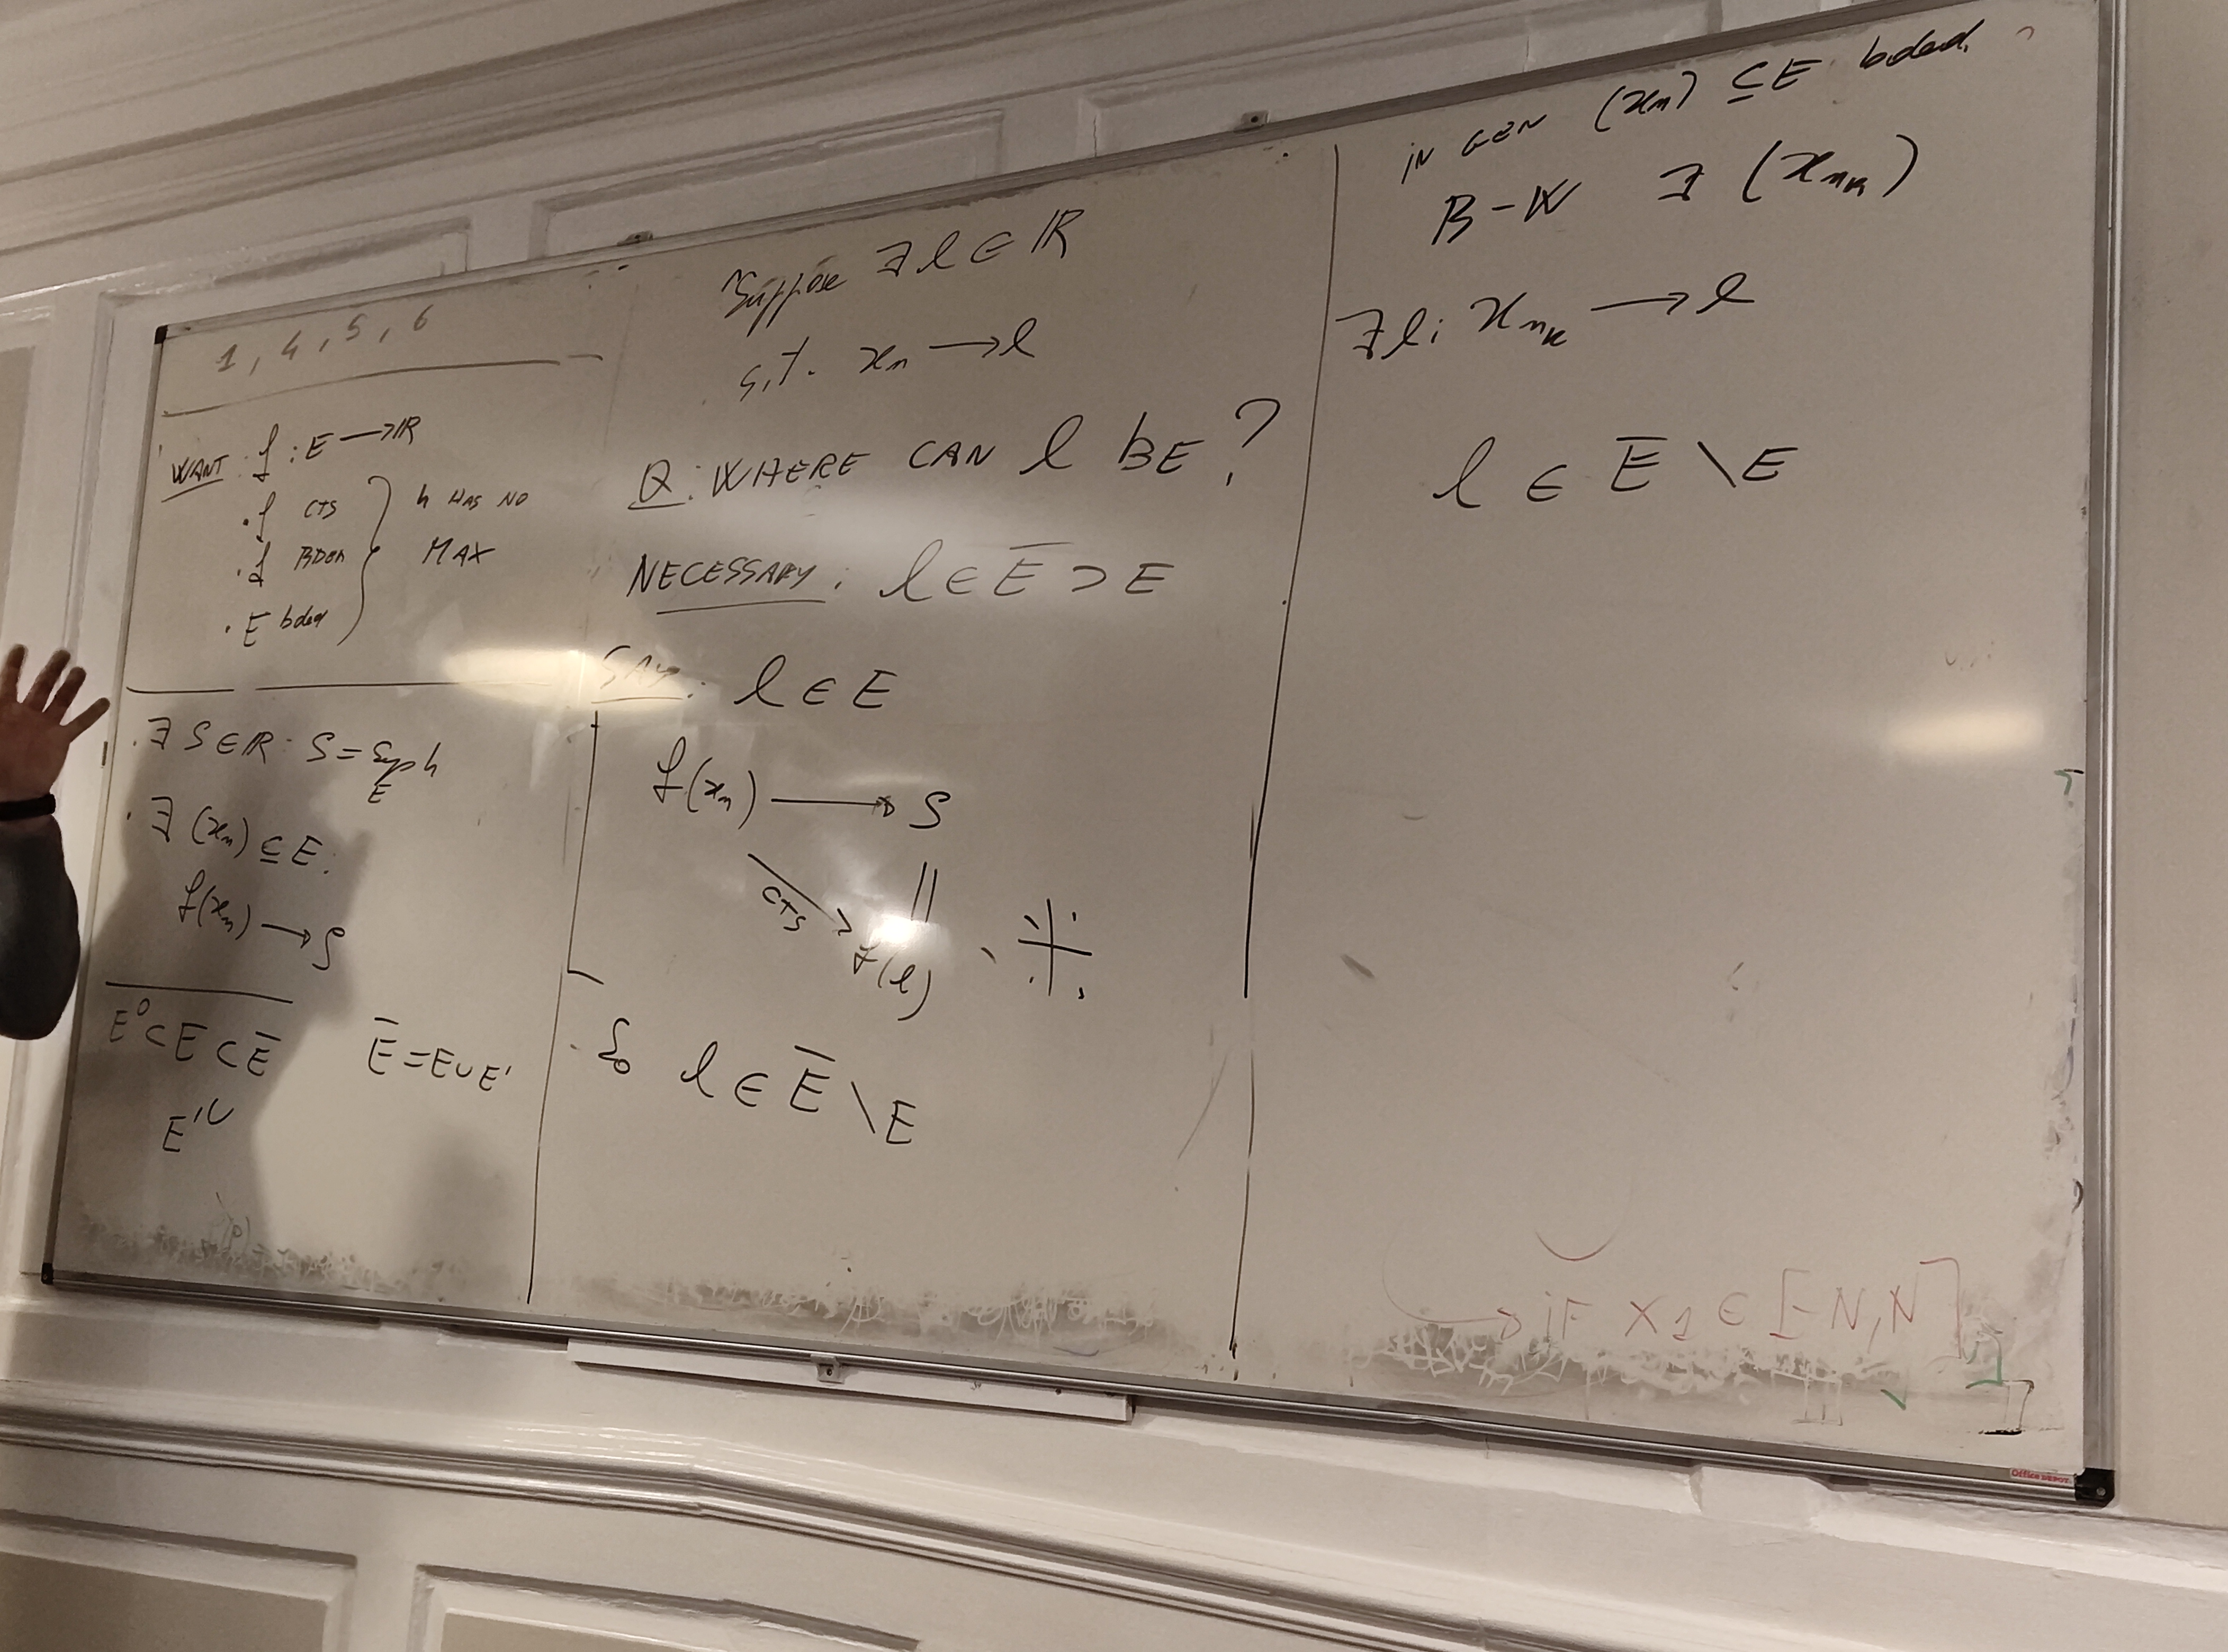 1, 4, 5, 6
WANT: f : E → ℝ
· f CTS
· f BDED
· E bded
h HAS NO
MAX
· ∃ S ∈ ℝ : S = Sup h
E
· ∃ (xₙ) ⊆ E :
f(xₙ) → S
E⁰ ⊂ E ⊂ E̅
E' ∪
E̅ = E ∪ E'
Suppose ∃ l ∈ ℝ
s.t. xₙ → l
Q: WHERE CAN l BE?
NECESSARY: l ∈ E̅ ⊃ E
SAY: l ∈ E
f(xₙ) → S
||
CTS
f(l)
So l ∈ E̅ \ E
IN GEN (xₙ) ⊆ E bded.
B-W ∃ (xₙₖ)
∃ l : xₙₖ → l
l ∈ E̅ \ E
→ IF X₁ ∈ [-N, N]
Office DEPOT